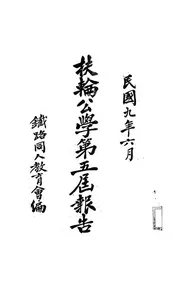 民國九年六月
扶輪公學第五屆報告
鐵路同人教育會編